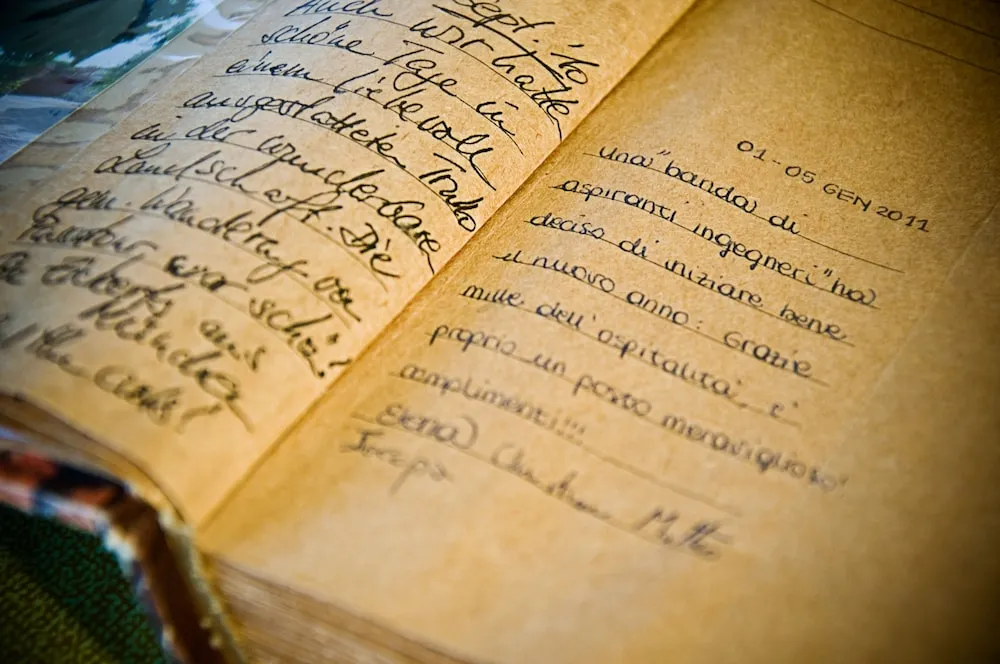 Sept. '10
Auch wir hatten
schöne Tage in
einem liebevoll
ausgestatteten Trullo
in der wunderbaren
Landschaft. Die
gem. Wanderung
war schön!
aus
München
01-05 GEN 2011
una "banda di
aspiranti ingegneri" ha
deciso di iniziare bene
il nuovo anno: Grazie
mille dell'ospitalità, è
proprio un posto meraviglioso
complimenti!!!
Elena Christian Matteo